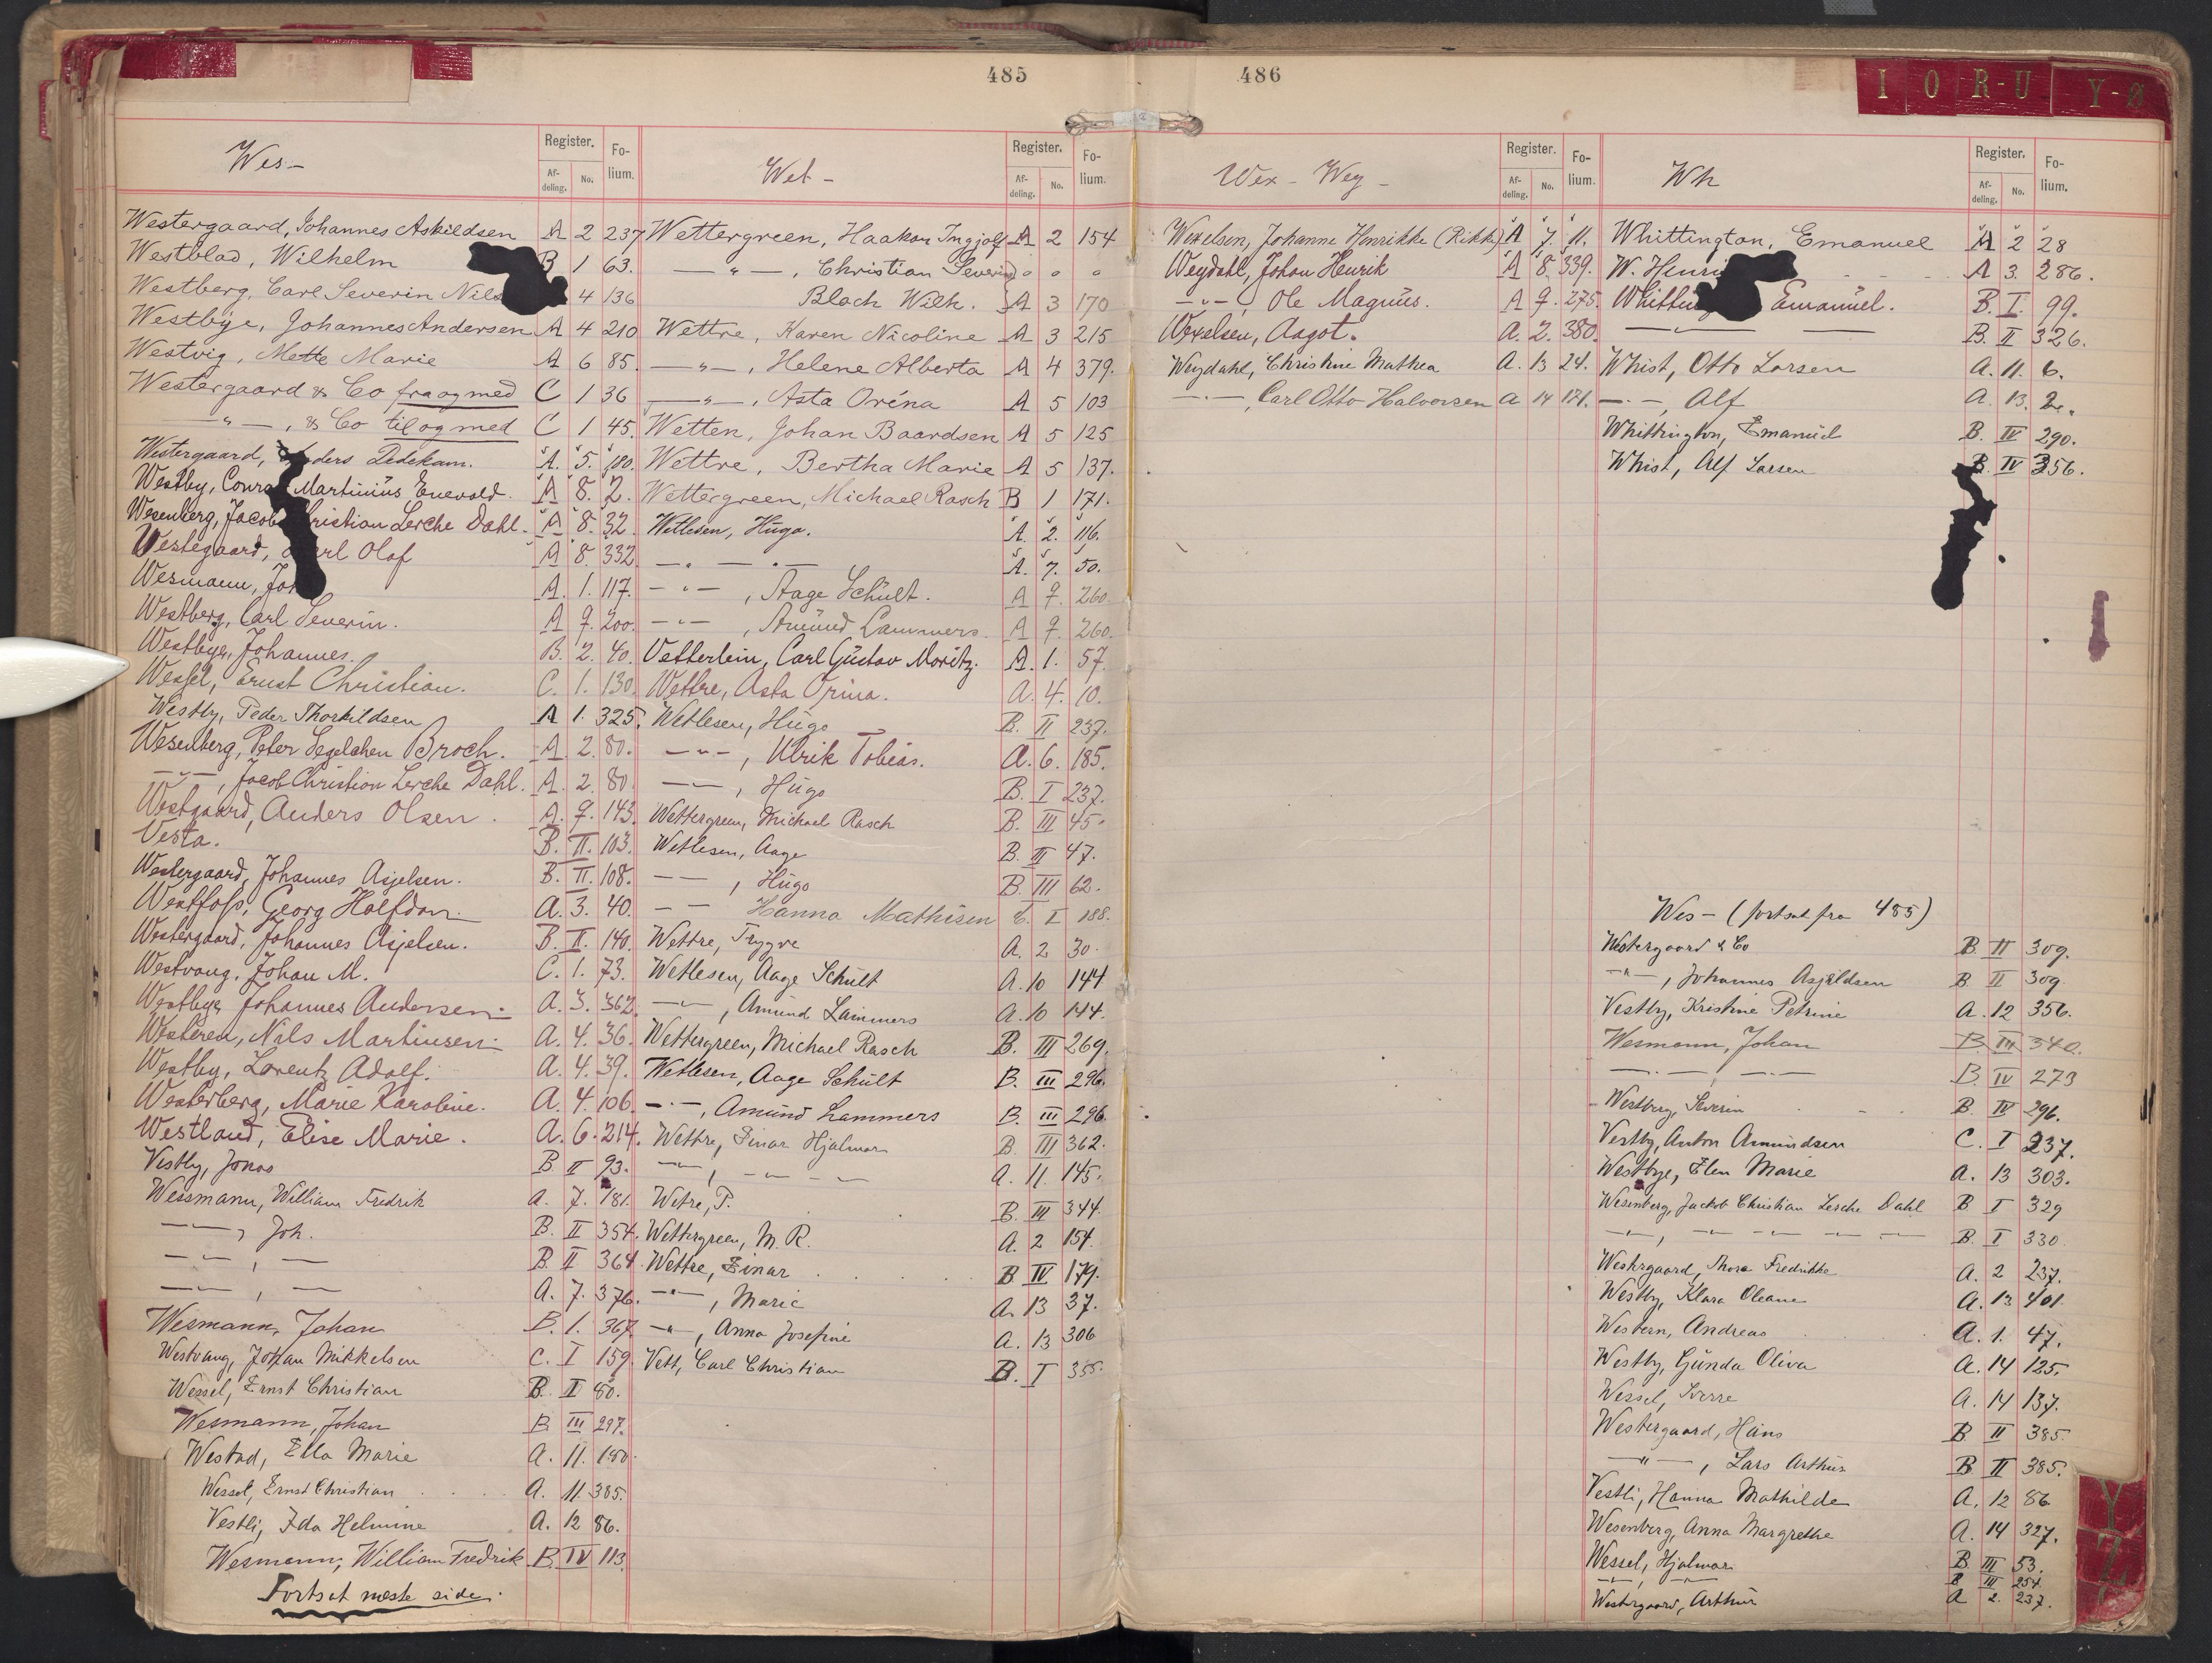 485
Wes-
Register.
Af-deling.
No.
Fo-lium.
Westergaard, Johannes Askildsen A 2 237
Westblad, Wilhelm B 1 63.
Westberg, Carl Severin Nils 4 136
Westbye, Johannes Andersen A 4 210
Westvig, Mette Marie A 6 85.
Westergaard & Co fra og med C 1 36
-"-, & Co til og med C 1 45.
Westergaard, Anders Dedekam. A. 5. 180.
Westby, Conrad Martinius Enevold. A 8. 2.
Wesenberg, Jacob Christian Lerche Dahl. A 8. 32.
Westegaard, Karl Olaf A 8 332
Wesmann, Joh A. 1. 117.
Westberg, Carl Severin. A 9. 200.
Westbye, Johannes. B. 2. 40.
Wessel, Ernst Christian. C. 1. 130.
Westby, Peder Thorkildsen A 1. 325.
Wesenberg, Peter Segelchen Broch. A. 2. 80.
-"-, Jacob Christian Lerche Dahl. A. 2. 80.
Westgaard, Anders Olsen. A. 9. 143.
Vesta. B. II. 103.
Westergaard, Johannes Asjelsen. B. II. 108.
Westfoss, Georg Halfdan. A. 3. 40.
Westergaard, Johannes Asjelsen. B. II. 140.
Westvang, Johan M. C. 1. 73.
Westbye, Johannes Andersen. A. 3. 362.
Westeren, Nils Martinsen. A. 4. 36.
Westby, Lorentz Adolf. A. 4. 39.
Westerberg, Marie Karoline. A. 4. 106.
Westland, Elise Marie. A. 6. 214.
Vestly, Jonas B II 93.
Wessmann, William Fredrik A. 7. 181.
-"-, Joh. B. II 354.
-"-, - B II 364.
-"-, - A. 7. 376.
Wesmann, Johan B. 1. 367
Westvang, Johan Mikkelsen C. I 159.
Wessel, Ernst Christian B. II 80.
Wesmann, Johan B. III 297.
Westad, Ella Marie A. 11. 180.
Wessel, Ernst Christian A. 11 385.
Vestli, Ida Helmine A. 12 86.
Wesmann, William Fredrik B. IV 113.
Fortsat næste side.
Wet-
Register.
Af-deling.
No.
Fo-lium.
Wettergreen, Haakon Ingjolf A 2 154
-"-, Christian Severin " " "
Bloch Wilh. A 3 170
Wettre, Karen Nicoline A 3 215
-"-, Helene Alberta A 4 379.
-"-, Asta Oréna A 5 103
Wetten, Johan Baardsen A 5 125
Wettre, Bertha Marie A 5 137.
Wettergreen, Michael Rasch B 1 171.
Wetlesen, Hugo. A. 2. 116.
-"- -"- A. 7. 50.
-"-, Aage Schult. A 9. 260
-"-, Amund Lammers. A 9. 260.
Vetterlein, Carl Gustav Moritz. A. 1. 57.
Wettre, Asta Orina. A. 4. 10.
Wetlesen, Hugo B. II 237.
-"-, Ulrik Tobias. A. 6. 185.
-"-, Hugo B. I 237.
Wettergreen, Michael Rasch B. III 45.
Wetlesen, Aage B. III 47.
-"-, Hugo B. III 62.
- - Hanna Mathisen C. I 188.
Wettre, Trygve A. 2 30.
Wetlesen, Aage Schult A. 10 144
-"-, Amund Lammers A. 10 144.
Wettergreen, Michael Rasch B. III 269.
Wetlesen, Aage Schult B. III 296.
-"-, Amund Lammers B. III 296
Wettre, Einar Hjalmar B. III 362.
-"-, -"- A. 11. 145.
Wetre, P. B. III 344.
Wettergreen, M. R. A. 2 154.
Wettre, Einar B IV 179.
-"-, Marie A. 13 37.
-"-, Anna Josefine A. 13 306
Vett, Carl Christian B. I 355.
486
I O R-U Y-Ø
Wex- Wey-
Register.
Af-deling.
No.
Fo-lium.
Wexelsen, Johanne Henrikke (Rikke) A 7. 11.
Weydahl, Johan Henrik A 8. 339.
-"-, Ole Magnus. A 9. 275.
Wexelsen, Aagot. A. 2. 380.
Weydahl, Christine Mathea A. 13 24.
-"-, Carl Otto Halvorsen A 14 171.
Wh
Register.
Af-deling.
No.
Fo-lium.
Whittington, Emanuel A 2 28
W. Henri A 3. 286.
Whittin Emanuel. B. I. 99.
-"- B. II 326.
Whist, Otto Larsen A. 11. 6.
-"-, Alf A. 13. 2.
Whittington, Emanuel B. IV 290.
Whist, Alf Larsen B. IV 356.
Wes- (fortsat fra 485)
Westergaard & Co B. II 309.
-"-, Johannes Asjeldsen B. II 309
Vestby, Kristine Petrine A. 12 356.
Wesmann, Johan B. III 340.
-"-, -"- B. IV 273
Westberg, Severin B. IV 296.
Vestby, Anton Amundsen C. I 237.
Westbye, Elen Marie A. 13 303.
Wesenberg, Jackob Christian Lerche Dahl B I 329
-"-, -"- B. I 330.
Westergaard, Thora Fredrikke A. 2 237.
Westby, Klara Oleane A. 13 401.
Western, Andreas A. 1. 47.
Westby, Gunda Oliva A. 14 125.
Wessel, Sverre A. 14 137.
Westergaard, Hans B II 385.
-"-, Lars Arthur B II 385.
Vestli, Hanna Mathilde A. 12 86
Wesenberg, Anna Margrethe A. 14 327.
Wessel, Hjalmar B III 53.
-"-, -"- B III 254.
Westergaard, Arthur A 2. 237.
Y
Z